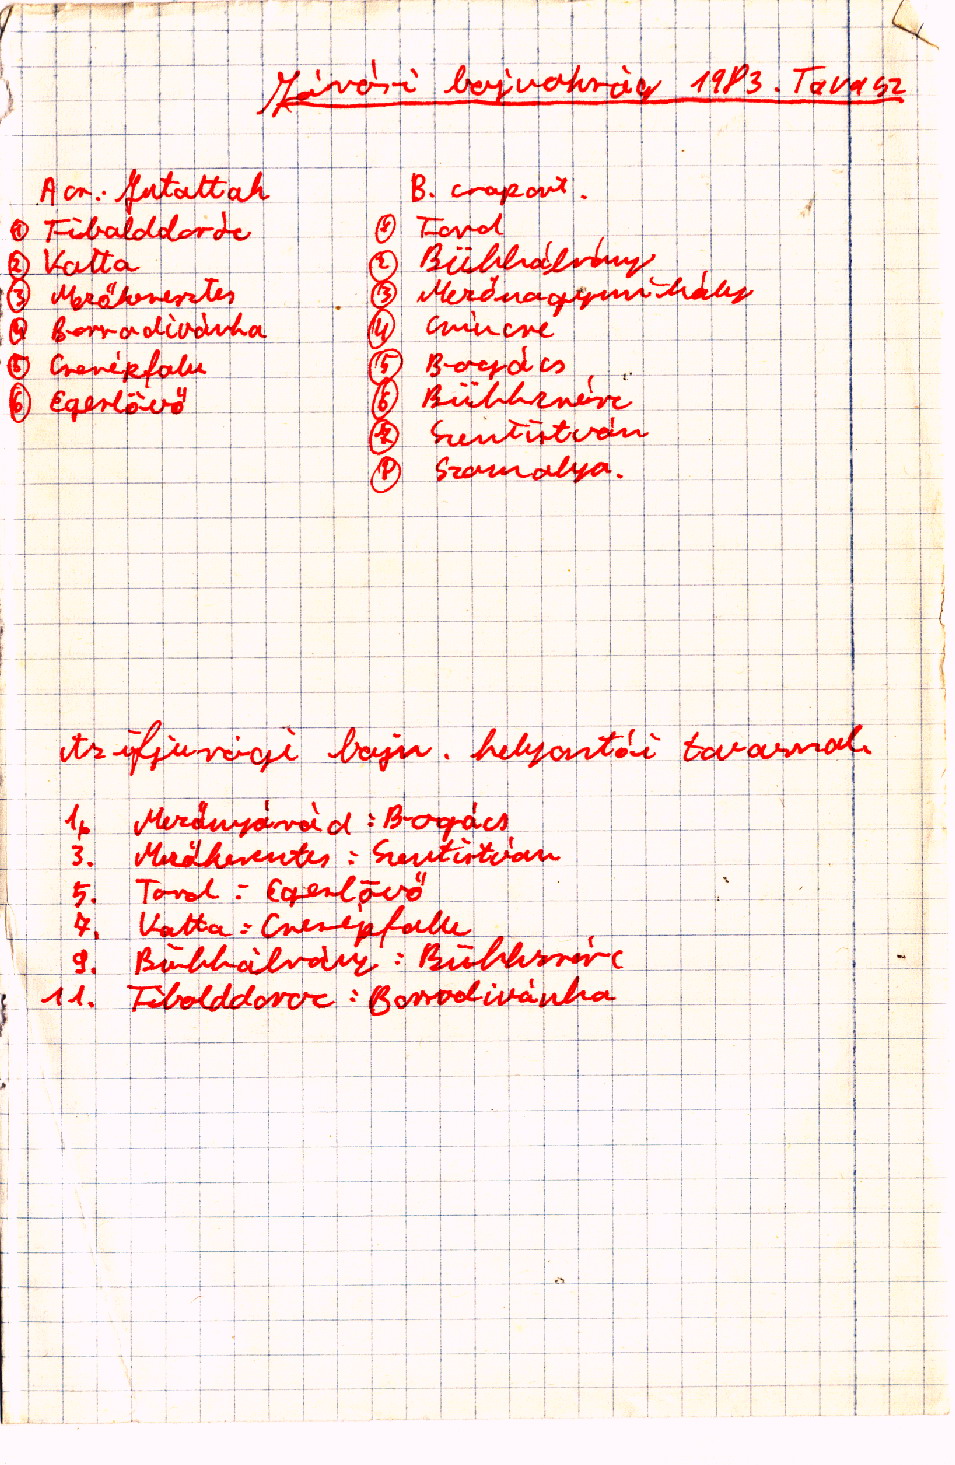 Járási bajnokság 1983. Tavasz
A cs. Jutattak
1 Tibolddaróc
2 Vatta
3 Mezőkeresztes
4 Borsodivánka
5 Cserépfalu
6 Egerlövő
B. csoport.
1 Tard
2 Bükkábrány
3 Mezőnagymihály
4 Csincse
5 Bogács
6 Bükkzsérc
7 Szentistván
8 Szomolya.
Az ifjusági bajn. helyosztói tavasszal.
1. Mezőnyárád : Bogács
3. Mezőkeresztes : Szentistván
5. Tard : Egerlövő
7. Vatta : Cserépfalu
9. Bükkábrány : Bükkzsérc
11. Tibolddaroc : Borsodivánka